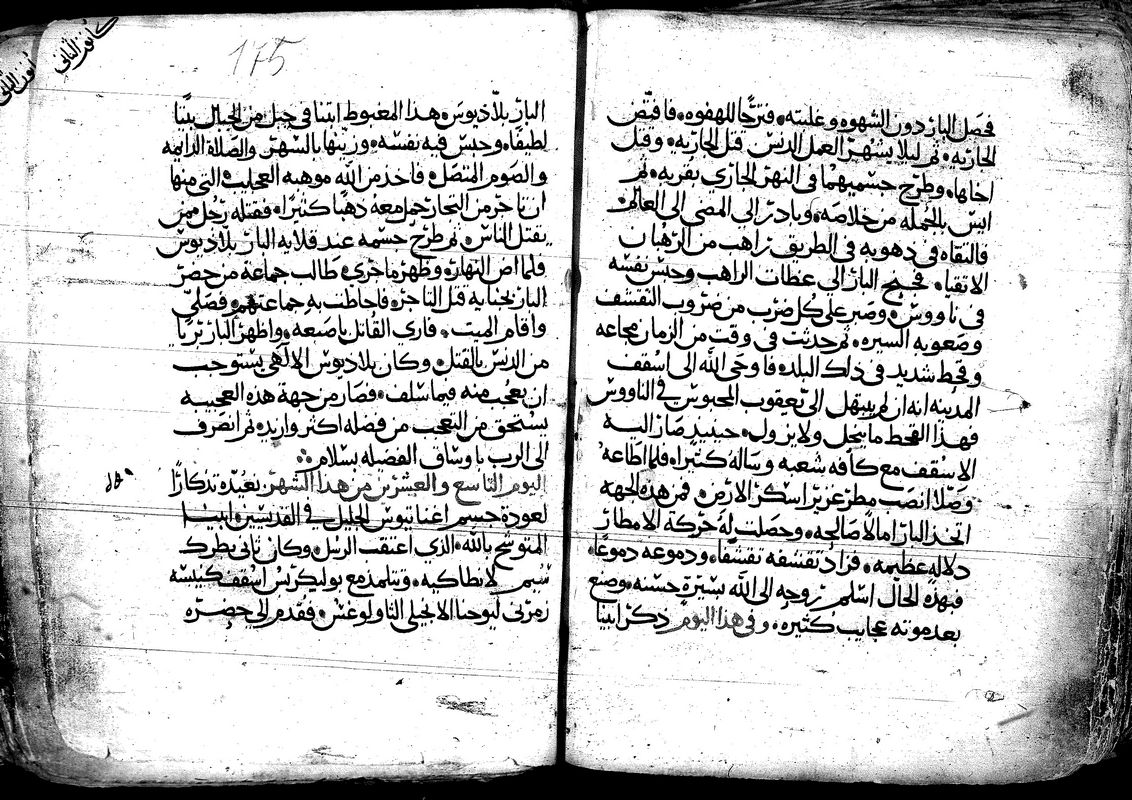 فحصل البار دون الشهوه وغلبته، فترجا للهفوه، فاقبض
الجاريه، ثم ليلا يشهر العمل الدنس قتل الجاريه، وقتل
اخاها، وطرح جسميهما في النهر الجاري بقربه، ثم
ايس بالجمله من خلاصه، وبادر الى المضى الى العالم
فالتقاه في دهوبه في الطريق راهب من الرهبان
الاتقيا، فجنح البار الى عظات الراهب وحبس نفسه
في ناووس، وصبر على كل ضرب من ضروب التقشف
وصعوبة السيره، ثم حدثت في وقت من الزمان مجاعه
وقحط شديد في ذلك البلد، فاوحى الله الى اسقف
المدينه انه ان لم يبتهل الى يعقوب المحبوس في الناووس
فهذا القحط ما ينحل ولا يزول، حينيذ صار اليه
الاسقف مع كافه شعبه وساله كثيرا، فلما اطاعه
وصلا انصب مطر عزيز اسكر الارض، فمن هذه الجهه
اتخذ البار امالا صالحه، وحصلت له حركة الامطار
دلاله عظيمه، فزاد تقشفه تقشفا، ودموعه دموعا،
فبهذه الحال اسلم روحه الى الله بسيرة حسنه، وصنع
بعد موته عجايب كثيره، وفي هذا اليوم ذكر ابينا
كانون الثاني
كانون الثاني
175
البار بلاديوس، هذا المغبوط ابتنا في جبل من الجبال بيتا
لطيفا، وحبس فيه نفسه، وزينها بالسهر، والصلاة الدايمه
والصوم المتصل، فاخذ من الله موهبة العجايب التي منها
ان تاجر من التجار حمل معه ذهبا كثيرا، فقتله رجل ممن
يقتل الناس، ثم طرح جسمه عند قلاية البار بلاديوس
فلما اض النهار، وظهر ما جرى، طالب جماعة من حضر
البار بجناية قتل التاجر، فاحاطت به جماعتهم، فصلى
واقام الميت، فارى القاتل باصبعه، واظهر البار بريا
من الدنس بالقتل، وكان بلاديوس الالهي يستوجب
ان يعجب منه فيما سلف، فصار من جهة هذه العجيبه
يستحق من التعجب من فضله اكثر وازيد، ثم انصرف
الى الرب باوساق الفضله بسلام
اليوم التاسع والعشرين من هذا الشهر، نعيد، تذكارا
لعودة جسم اغناتيوس الجليل في القديسين ابينا
المتوشح بالله، الذي اعتقب الرسل، وكان ثاني بطريرك
لانطاكيه، وتتلمذ مع بوليكربس اسقف كنيسه
زمرني ليوحنا الانجيلي الثاولوغس، فقدم الى حضرة